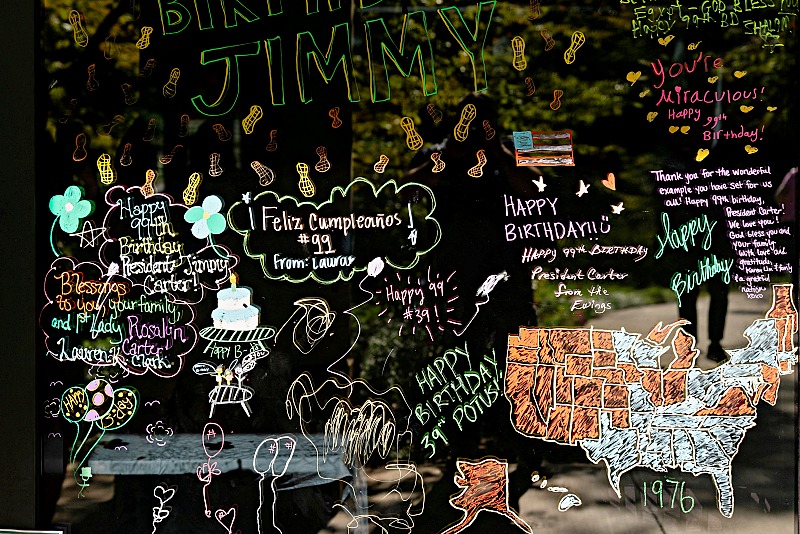 BIRTHDAY
JIMMY
GOD BLESS YOU
Happy 99th BD
You're
Miraculous!
Happy 99th
Birthday!
Happy
99th
Birthday
President Jimmy
Carter!
¡Feliz Cumpleaños!
#99
From: Laura
HAPPY
BIRTHDAY!!
HAPPY 99th BIRTHDAY
President Carter
from the
Ewings
Thank you for the wonderful
example you have set for us
all! Happy 99th birthday,
President Carter!
We love you!
God bless you and
your family
with love and
gratitude,
Happy
Birthday
Blessings
to you, your family,
and 1st Lady Rosalyn
Carter!
Lauren K. Clark
Happy 99
#39!
HAPPY
BIRTHDAY
39th POTUS!
HAPPY
DAY
1976